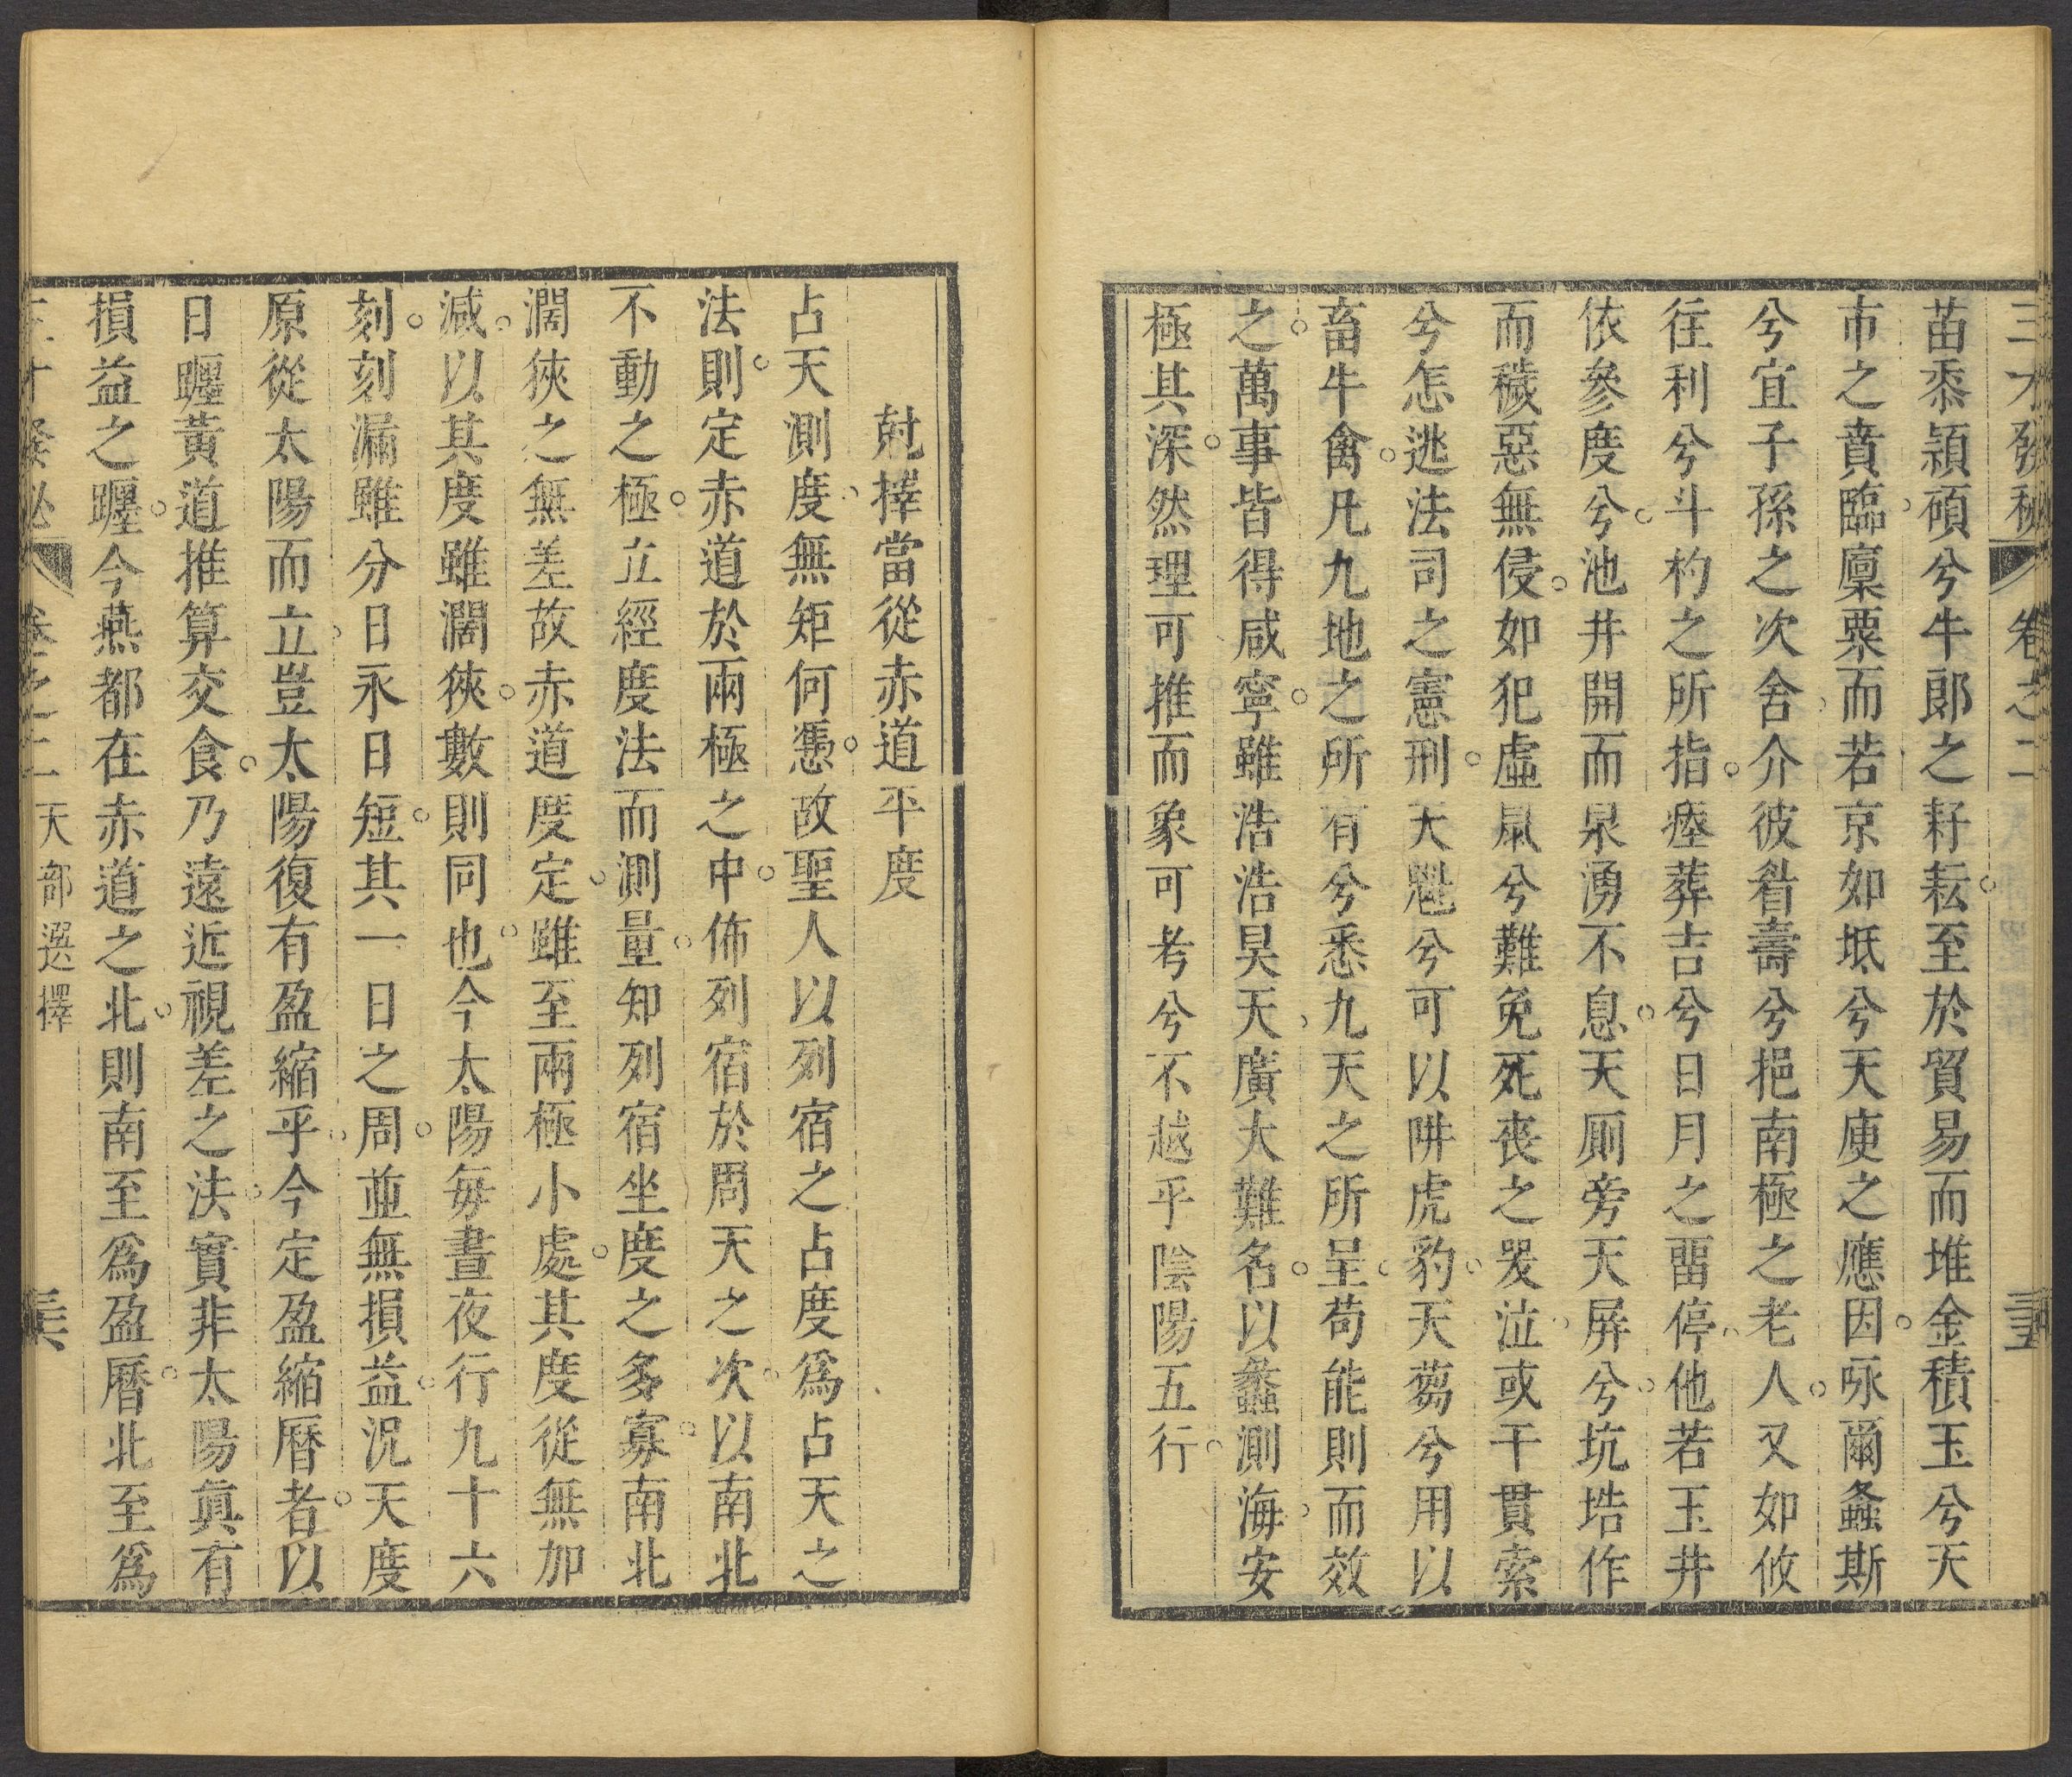 三才發秘 卷之二 三五
苗黍穎碩兮牛郎之耔耘至於貿易而堆金積玉兮天
市之賁臨廩粟而若京如坻兮天庾之應因咏爾螽斯
兮宜子孫之次舍介彼眉壽兮挹南極之老人又如攸
往利兮斗杓之所指瘞葬吉兮日月之畱停他若玉井
依參度兮池井開而泉湧不息天厠旁天屏兮坑𡋯作
而穢惡無侵如犯虛㬎兮難免死喪之哭泣或干貫索
兮怎逃法司之憲刑天魁兮可以阱虎豹天蒭兮用以
畜牛禽凡九地之所有兮悉九天之所呈苟能則而效
之萬事皆得咸寧雖浩浩昊天廣大難名以蠡測海安
極其深然理可推而象可考兮不越乎陰陽五行
尅擇當從赤道平度
占天測度無矩何憑故聖人以列宿之占度爲占天之
法則定赤道於兩極之中佈列宿於周天之次以南北
不動之極立經度法而測量知列宿坐度之多寡南北
濶狹之無差故赤道度定雖至兩極小處其度從無加
減以其度雖濶狹數則同也今太陽每晝夜行九十六
刻刻漏雖分日永日短其一日之周並無損益況天度
原從太陽而立豈太陽復有盈縮乎今定盈縮曆者以
日躔黃道推算交食乃遠近視差之法實非太陽眞有
損益之躔今燕都在赤道之北則南至爲盈曆北至爲
三才發秘 卷之二 天部選擇 三六